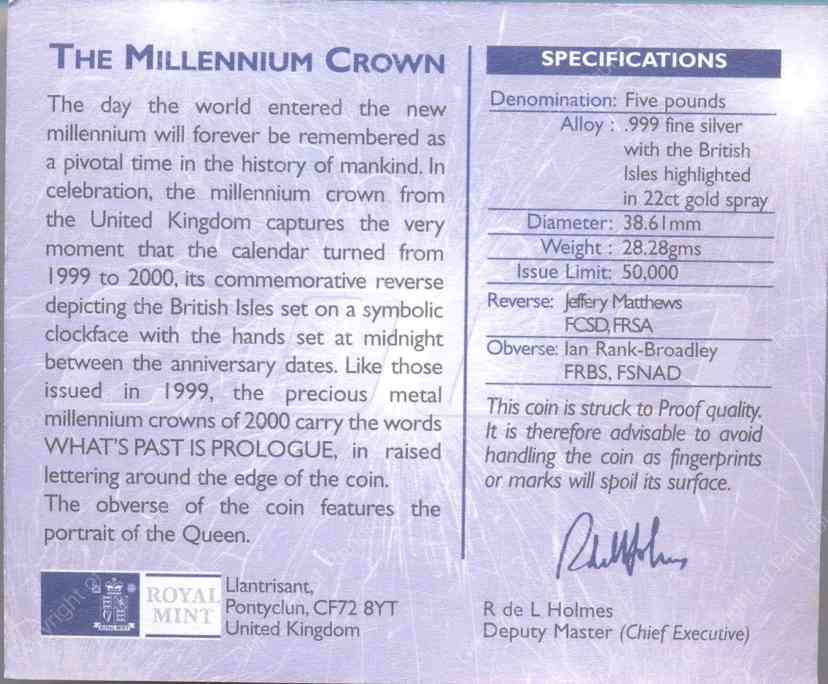 THE MILLENNIUM CROWN
The day the world entered the new
millennium will forever be remembered as
a pivotal time in the history of mankind. In
celebration, the millennium crown from
the United Kingdom captures the very
moment that the calendar turned from
1999 to 2000, its commemorative reverse
depicting the British Isles set on a symbolic
clockface with the hands set at midnight
between the anniversary dates. Like those
issued in 1999, the precious metal
millennium crowns of 2000 carry the words
WHAT'S PAST IS PROLOGUE, in raised
lettering around the edge of the coin.
The obverse of the coin features the
portrait of the Queen.
ROYAL
MINT
Llantrisant,
Pontyclun, CF72 8YT
United Kingdom
SPECIFICATIONS
Denomination: Five pounds
Alloy : .999 fine silver
with the British
Isles highlighted
in 22ct gold spray
Diameter: 38.61mm
Weight : 28.28gms
Issue Limit: 50,000
Reverse: Jeffery Matthews
FCSD, FRSA
Obverse: Ian Rank-Broadley
FRBS, FSNAD
This coin is struck to Proof quality.
It is therefore advisable to avoid
handling the coin as fingerprints
or marks will spoil its surface.
R de L Holmes
Deputy Master (Chief Executive)